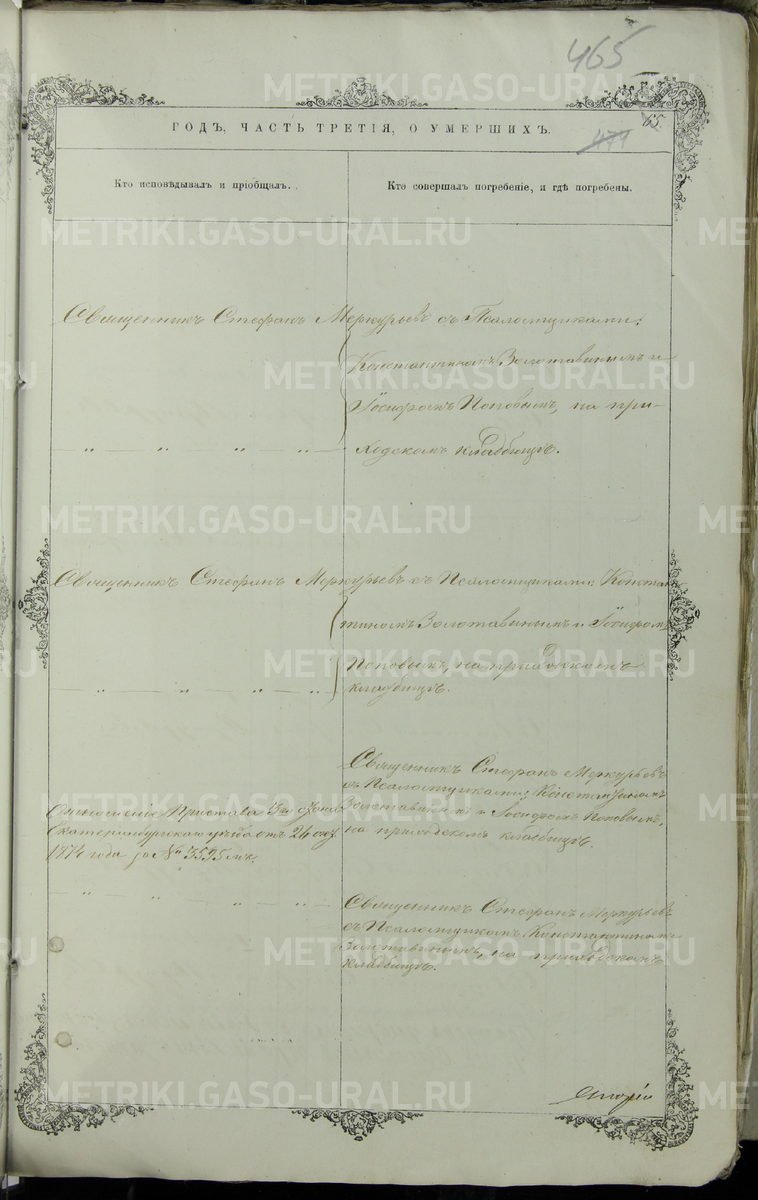 465
65.
471
ГОДЪ, ЧАСТЬ ТРЕТІЯ, О УМЕРШИХЪ.
Кто исповѣдывалъ и пріобщалъ.
Кто совершалъ погребеніе, и гдѣ погребены.
Священникъ Стефанъ Меркурьевъ съ Псаломщиками:
Константиномъ Золотавинымъ и
Іосифомъ Поповымъ, на при-
ходскомъ кладбищѣ.
— „ — „ — „ — „ —
Священникъ Стефанъ Меркурьевъ съ Псаломщиками: Констан
тиномъ Золотавинымъ и Іосифомъ
Поповымъ, на приходскомъ
кладбищѣ.
— „ — „ — „ — „
Отношеніе Пристава 3го стана
Екатеринбургскаго уѣзда отъ 24
1874 года за № 3595
Священникъ Стефанъ Меркурьевъ
съ Псаломщиками: Константиномъ
Золотавинымъ и Іосифомъ Поповымъ,
на приходскомъ кладбищѣ.
— „ — „ — „ — „ —
Священникъ Стефанъ Меркурьевъ
съ Псаломщикомъ Константиномъ
Золотавинымъ, на приходскомъ
кладбищѣ.
METRIKI.GASO-URAL.RU